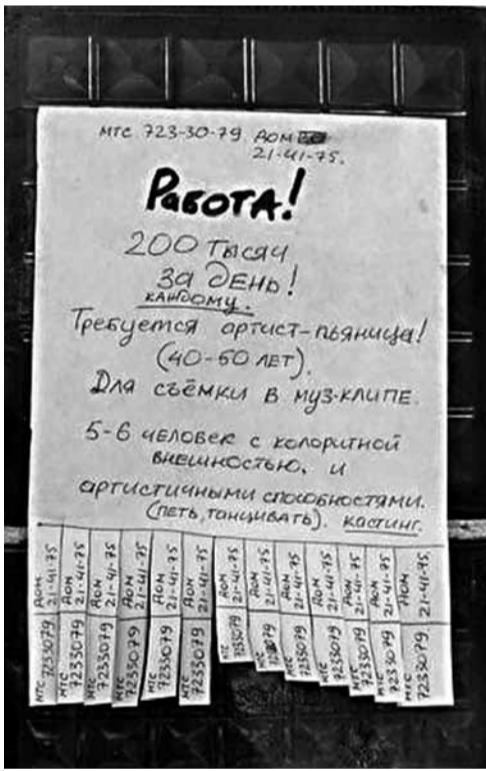 МТС 723-30-79. ДОМ
21-41-75.
РАБОТА!
200 ТЫСЯЧ
ЗА ДЕНЬ!
КАЖДОМУ.
Требуется артист-пьяница!
(40-60 ЛЕТ).
Для съёмки в муз-клипе.
5-6 человек с колоритной
внешностью, и
артистичными способностями.
(петь, танцивать). кастинг.
МТС 7233079 ДОМ 21-41-75
МТС 7233079 ДОМ 21-41-75
МТС 7233079 ДОМ 21-41-75
МТС 7233079 ДОМ 21-41-75
МТС 7233079 ДОМ 21-41-75
МТС 7233079 ДОМ 21-41-75
МТС 7233079 ДОМ 21-41-75
МТС 7233079 ДОМ 21-41-75
МТС 7233079 ДОМ 21-41-75
МТС 7233079 ДОМ 21-41-75
МТС 7233079 ДОМ 21-41-75
МТС 7233079 ДОМ 21-41-75